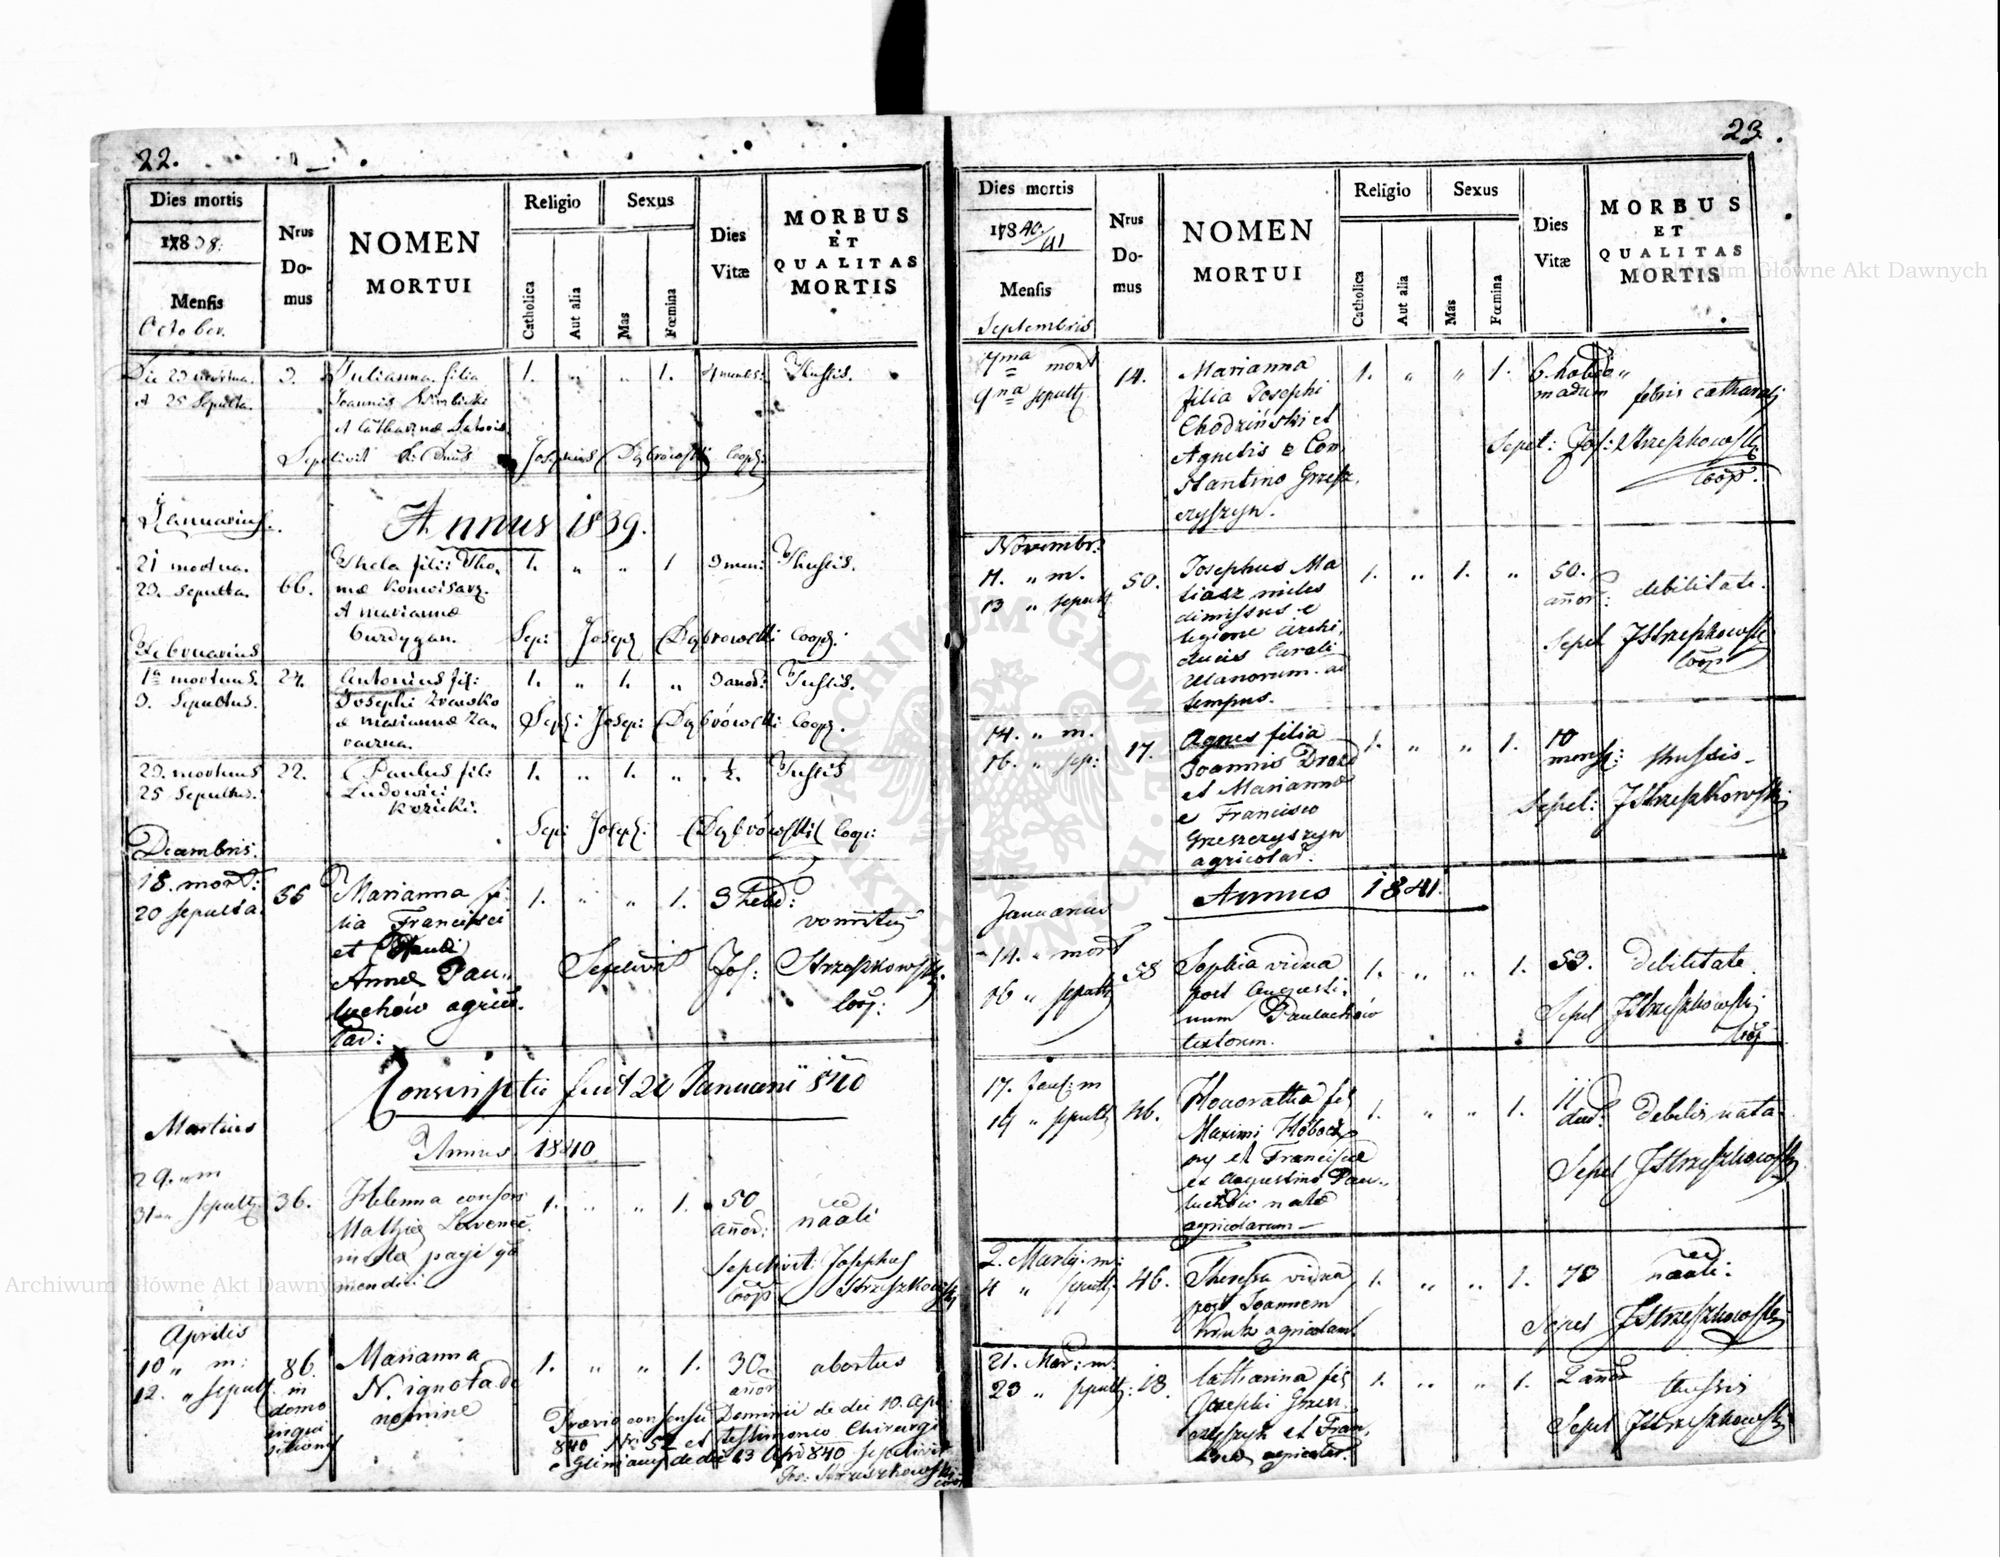 22.
Dies mortis
1838.
Mensis
October.
Nrus
Do-
mus
NOMEN
MORTUI
Religio
Catholica
Aut alia
Sexus
Mas
Fœmina
Dies
Vitæ
MORBUS
ET
QUALITAS
MORTIS
Die 23 mortua.
et 25 Sepulta.
3.
Julianna filia
Joannis
et Catharinæ
1. " " 1.
4 mens:
Thussis.
Sepelivit
Josephus Dąbrowski Coop:
Januarius.
Annus 1839.
21 mortua.
23. sepulta.
66.
Thecla fili: Tho,
mæ Komisarz.
et Mariannæ
Burdygan.
1. " " 1
3 men:
Thussis.
Sep: Joseph Dąbrowski Coop:
Februarius
1a mortuus.
3. Sepultus.
24.
Antonius fil:
Josephi
et Mariannæ
1. " 1. "
3 anor:
Tussis.
Sep: Josep: Dąbrówski Coop:
23. mortuus
25 Sepultus.
22.
Paulus fil:
Ludovici
Kozicki.
1. " 1. "
½.
Tussis
Sep: Joseph: Dąbrówski Coop:
Decembris.
18. mort:
20 sepulta.
36
Marianna fi:
lia Francisci
et
Annæ Pau,,
luchów agric.
lar:
1. " " 1.
3 hebd:
vomitus
Sepelivit Jos: Strzeszkowski
Coop:
Conscriptio fuit 22 Januarii 840
Martius
Annus 1840
29. " m
31 " sepult
36.
Helenna consors
Mathiæ
pagi
mendici
1. " " 1.
50
añor:
nãali
Sepelivit Josephus
Coop Strzeszkowski
Aprilis
10 " m:
12. " sepult
86.
in
domo
inqui
sitionis
Marianna
N. ignota de
nomine
1. " " 1.
30
añor
abortus
Prævio consensu Dominii de die 10. Apr:
840 Nr: 52 et testimonio Chirurgi
e Gliniany de die 13 Apr 840 sepelivit
Jos: Strzeszkowski
coop
23.
Dies mortis
1840/41
Mensis
Septembris
Nrus
Do-
mus
NOMEN
MORTUI
Religio
Catholica
Aut alia
Sexus
Mas
Fœmina
Dies
Vitæ
MORBUS
ET
QUALITAS
MORTIS
7ma mort
9na sepult
14.
Marianna
filia Josephi
Chodziński et
Agnetis e Con,
stantino Grzesz,
czyszyn.
1. " " 1.
6. hebdo
madum
febris catharal
Sepel: Jos: Strzeszkowski
Coop.
Novembr:
11. " m.
13 " sepult
50.
Josephus Ma
tiasz miles
dimissus e
legione Archi,
ducis Caroli
Ulanorum ad
tempus.
1. " 1. "
50.
añor:
debilitate.
Sepel JStrzeszkowski
Coop
14. " m.
16. " sep:
17.
Agnes filia
Joannis Drozd
et Mariannæ
e Francisco
Grzeszczyszyn
agricolar.
1. " " 1.
10
mens:
thussis
Sepel: JStrzeszkowski
Annus 1841.
Januarius
14. " mort
16 " sepult
55
Sophia vidua
post Augusti,
num Pauluchów
textorem.
1. " " 1.
53.
debilitate
Sepel JStrzeszkowski
Coop
17. Jan: m
19 " sepult
46.
Honoratha fil
Maximi
et Franciscæ
ex Augustino Pau,,
luchów natæ
agricolarum
1. " " 1.
11
dier:
debilis nata.
Sepel JStrzeszkowski
2. Martij. m:
4 " sepult
46.
Theressa vidua
post Joannem
Kruk agricolam
1. " " 1.
70
nãali:
Sepel JStrzeszkowski
21. Mar: m.
23 " sepult:
18.
Catharina fil
Josephi Grzesz,
czyszyn et Fran,
agricolar.
1. " " 1.
2 añor
tussis
Sepel JStrzeszkowski
Archiwum Główne Akt Dawnych
Archiwum Główne Akt Dawnych
ARCHIWUM GŁÓWNE AKT DAWNYCH